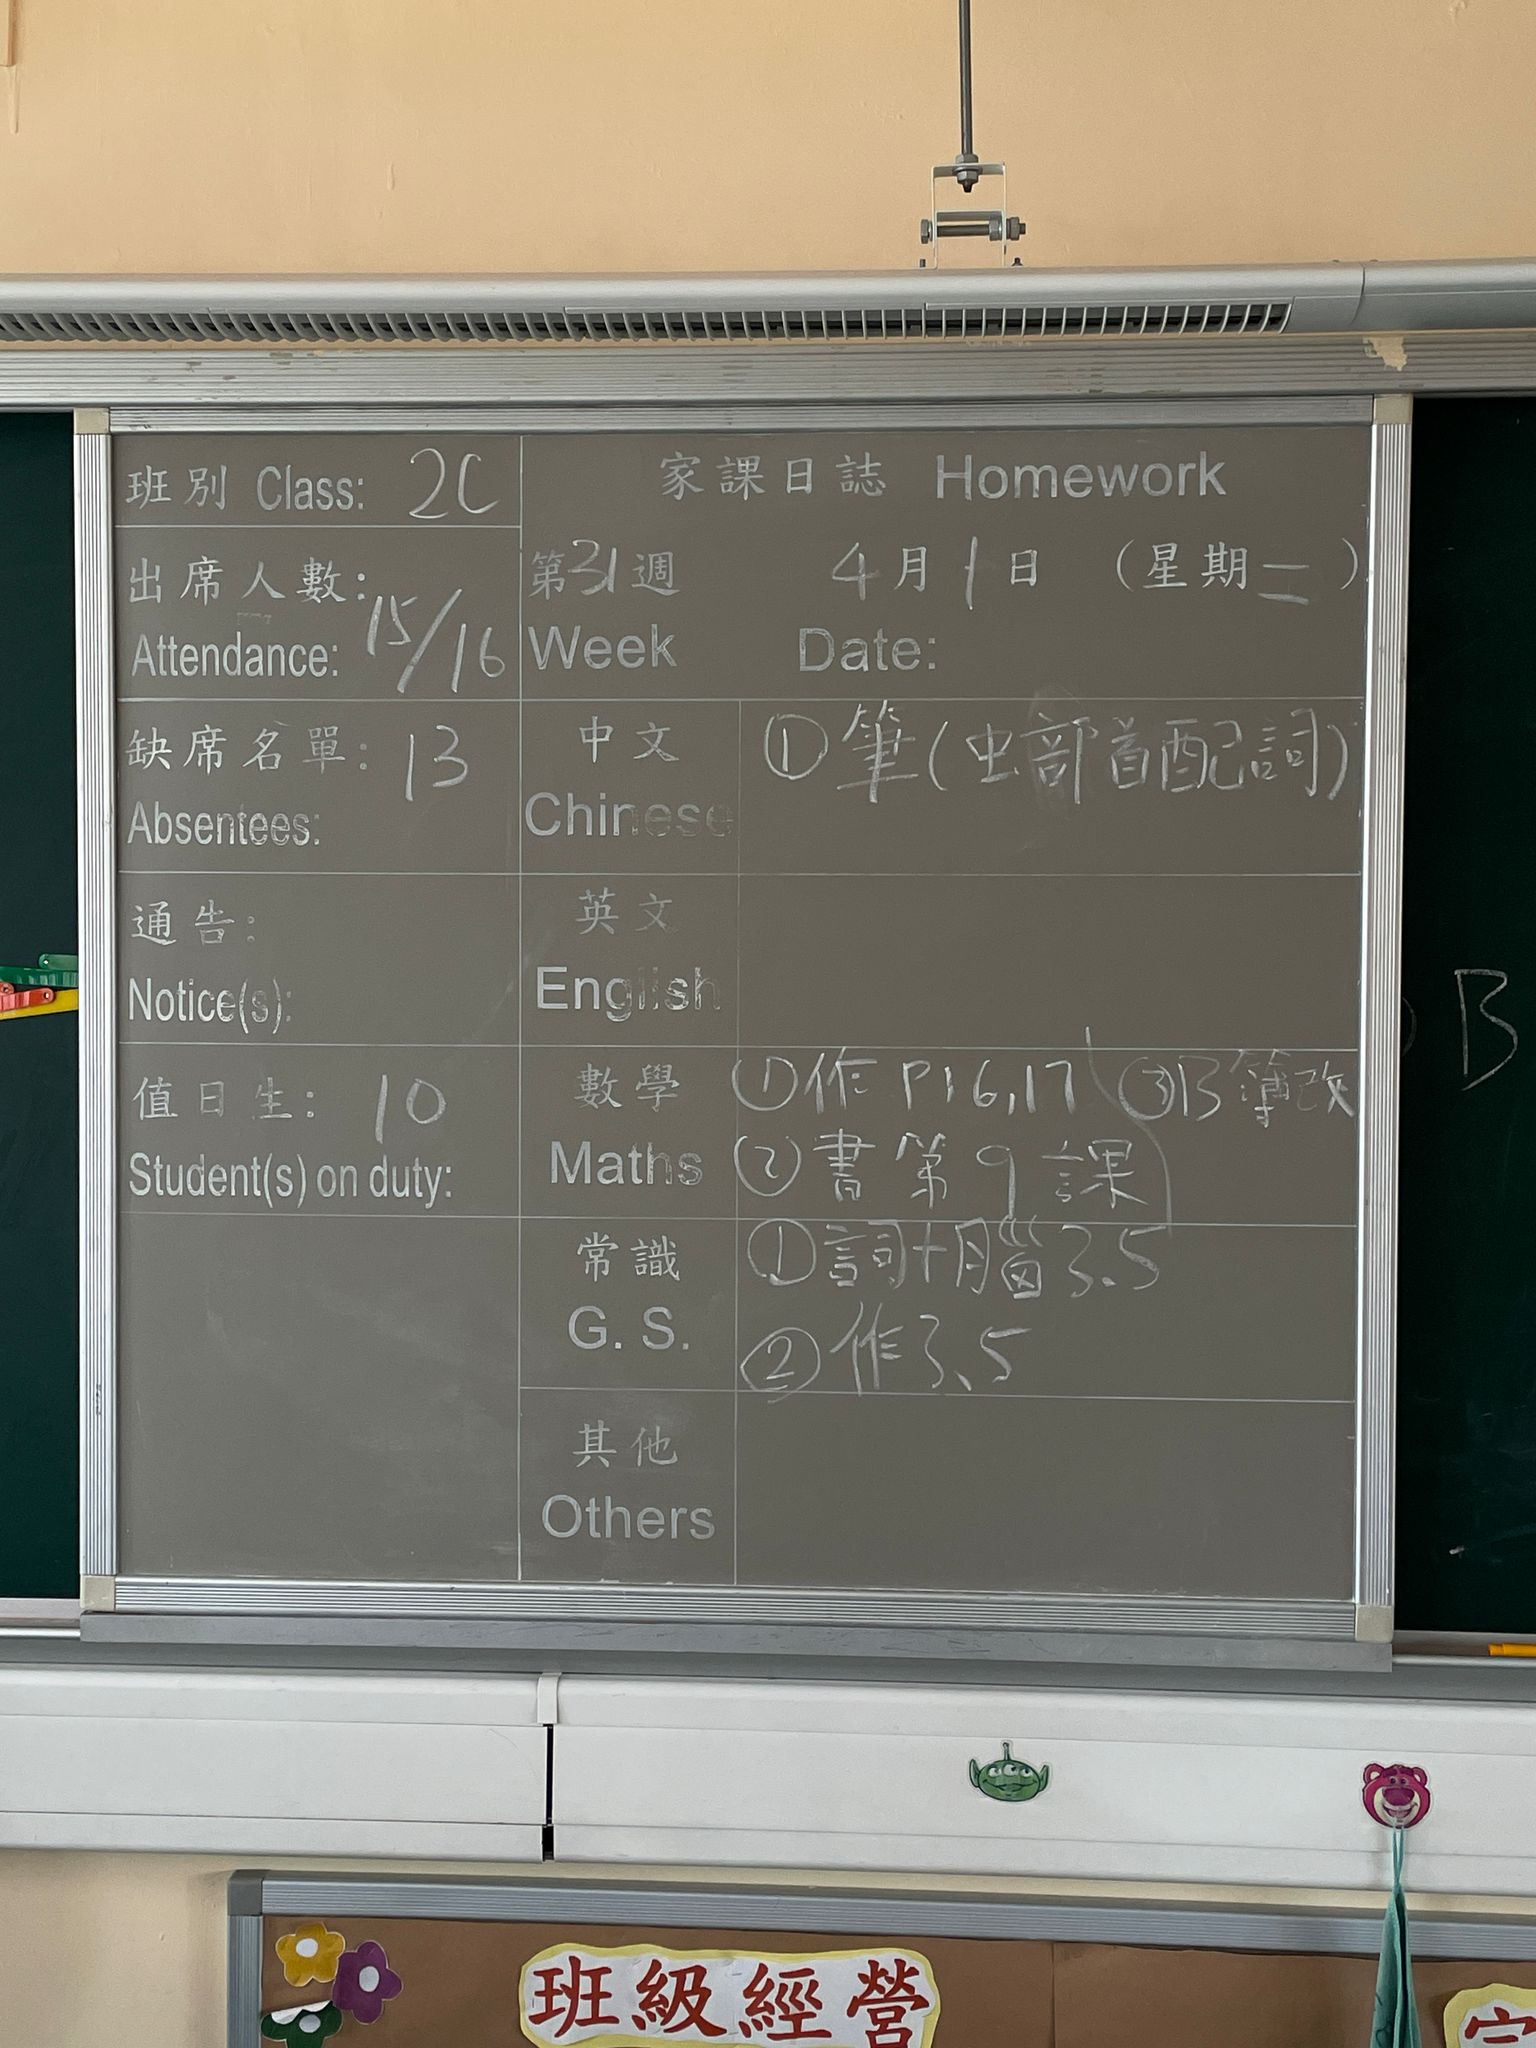 班別 Class: 2C
出席人數:
Attendance: 15/16
缺席名單: 13
Absentees:
通告:
Notice(s):
值日生: 10
Student(s) on duty:
家課日誌 Homework
第31週 4月1日 (星期二)
Week Date:
中文 ①筆(虫部首配詞)
Chinese
英文
English
數學 ①作 P16,17 ③B簿改
Maths ②書第9課
常識 ①詞+腦3.5
G. S. ②作3.5
其他
Others
B
班級經營